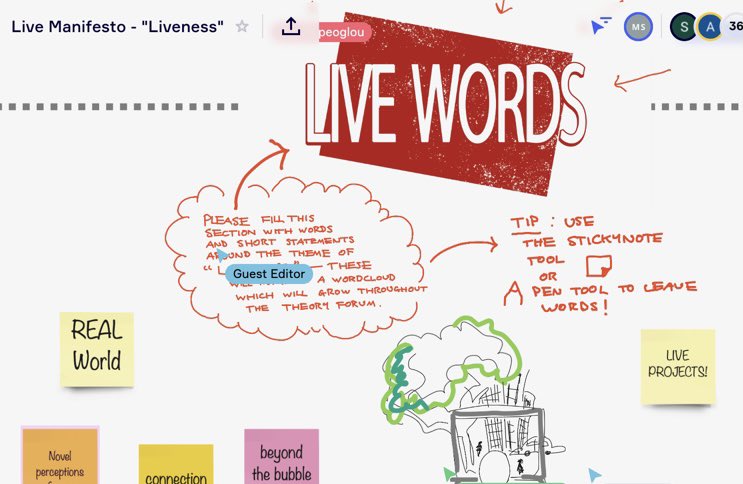 Live Manifesto - "Liveness"
peoglou
MS
S
A
36
LIVE WORDS
PLEASE FILL THIS
SECTION WITH WORDS
AND SHORT STATEMENTS
AROUND THE THEME OF
THESE
Guest Editor
A WORDCLOUD
WHICH WILL GROW THROUGHOUT
THE THEORY FORUM.
TIP: USE
THE STICKYNOTE
TOOL
OR
A PEN TOOL TO LEAVE
WORDS!
REAL
World
LIVE
PROJECTS!
Novel
perceptions
connection
beyond
the bubble